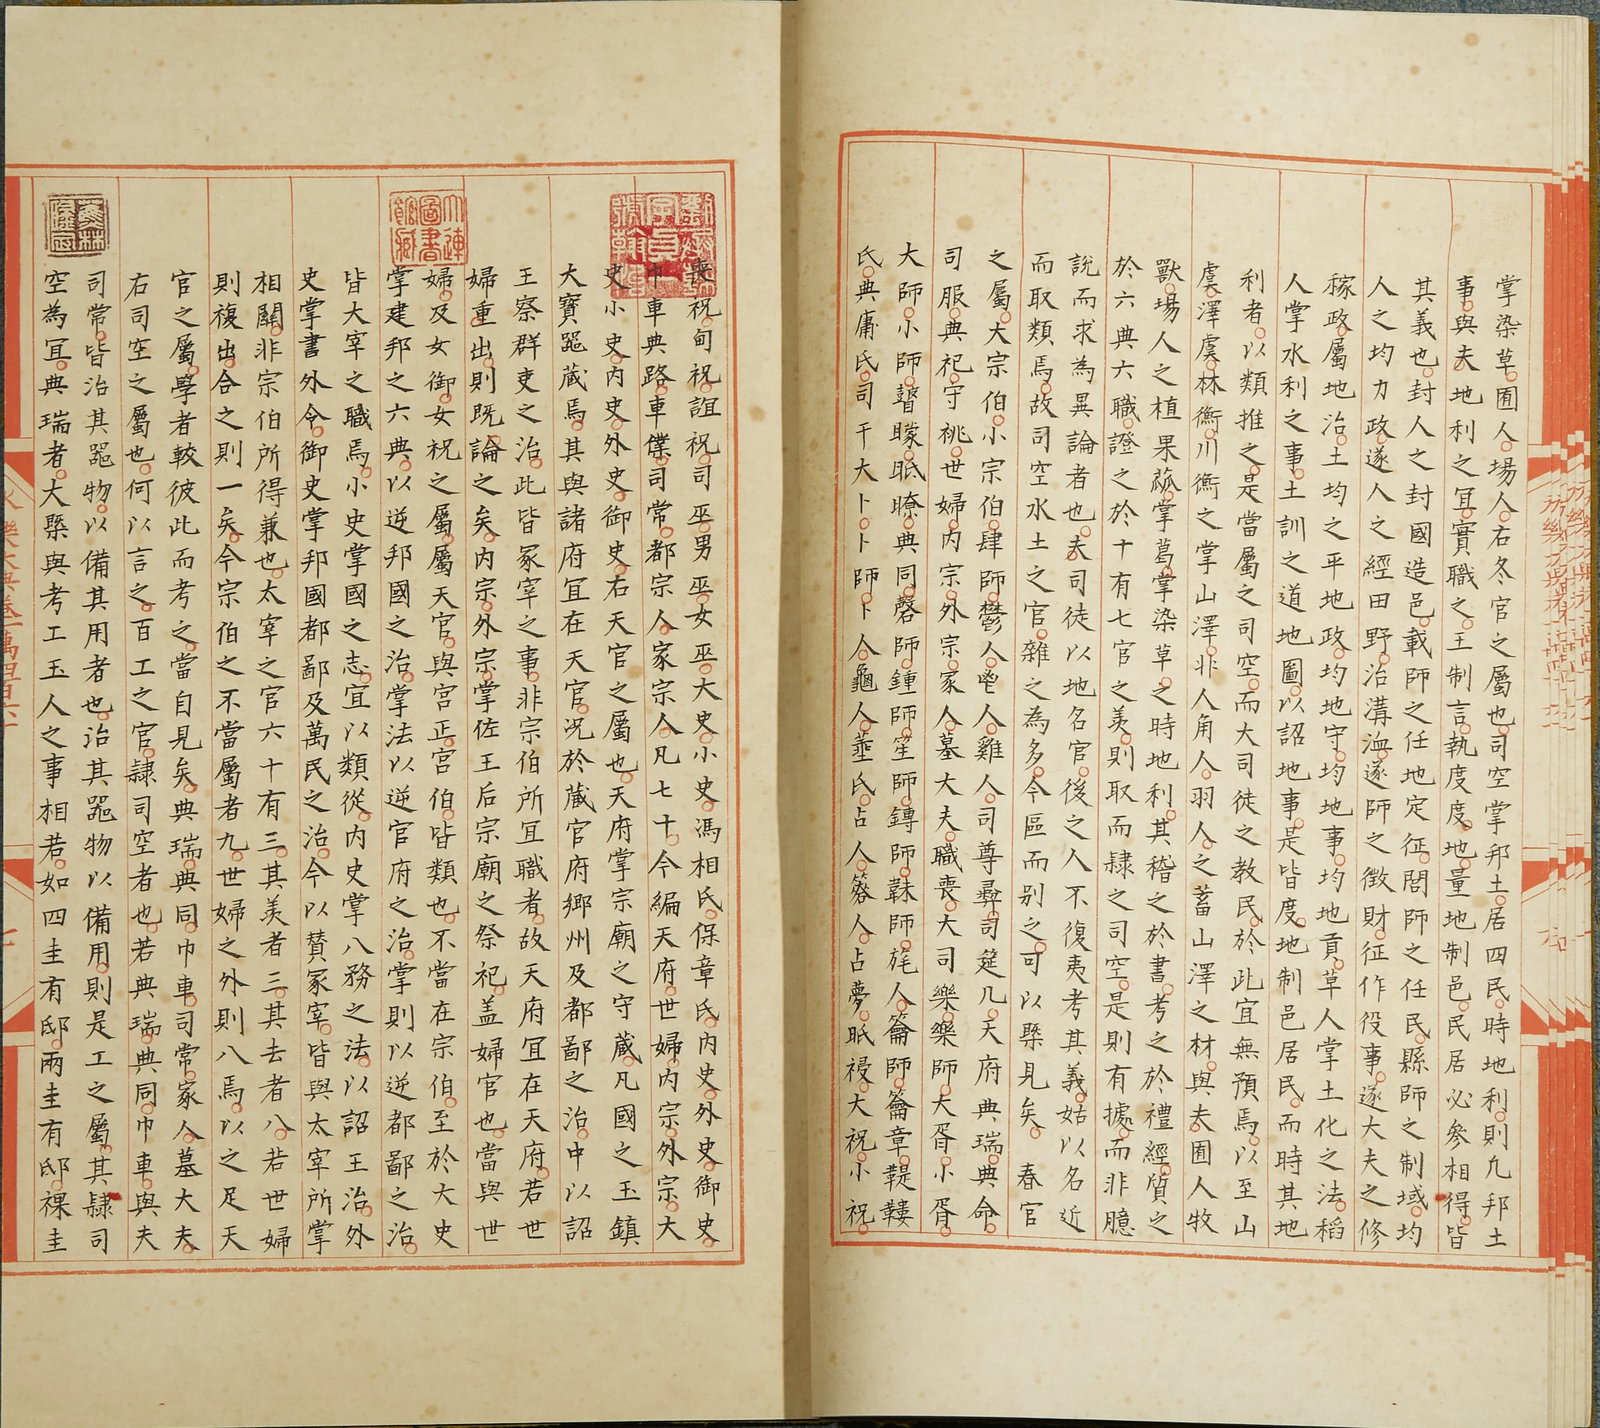 掌染草。囿人。場人。右冬官之屬也。司空掌邦土。居四民。時地利。則凡邦土
事。與夫地利之宜。實職之。王制言。執度度。地。量地制邑。民居必參相得。皆
其義也。封人之封國造邑。載師之任地定征。閭師之任民。縣師之制域。均
人之均力政。遂人之經田野。治溝洫。遂師之徵財。征作役事。遂大夫之修
稼政。屬地治。土均之平地政。均地守。均地事。均地貢。草人掌土化之法。稻
人掌水利之事。土訓之道地圖。以詔地事。是皆度。地制邑居民。而時其地
利者。以類推之。是當屬之司空。而大司徒之教民。於此宜無預焉。以至山
虞。澤虞。林衡。川衡之掌山澤。非人角人。羽人。之蓄山澤之材。與夫。囿人牧
獸。場人之植果蓏。掌葛。掌染草。之時地利。其稽之於書。考之於禮經。質之
於六典六職。證之於十有七官之羙。則取而隸之司空。是則有據。而非臆
說而求為異論者也。夫司徒以地名官。後之人不復夷考其義。姑以名近
而取類焉。故司空水土之官。雜之為多。今區而別之。可以槩見矣。　春官
之屬。大宗伯。小宗伯。肆師。鬱人。鬯人。雞人。司尊彝。司筵几。天府典瑞。典命。
司服。典祀。守祧。世婦。内宗。外宗。冢人。墓大夫。職喪。大司樂。樂師。大胥。小胥。
大師。小師。瞽矇。眡瞭。典同。磬師。鍾師。笙師。鎛師。韎師。旄人。籥師。籥章。鞮鞻
氏。典庸氏。司干大卜。卜師。卜人。龜人。菙氏。占人。簭人。占夢。眡祲。大祝。小祝。
喪祝。甸祝。詛祝。司巫。男巫。女巫。大史。小史。馮相氏。保章氏。内史。外史。御史。
巾車典路。車僕。司常。都宗人。家宗人。凡七十。今編天府。世婦。内宗外宗。大
史小史。内史。外史。御史。右天官之屬也。天府掌宗廟之守藏。凡國之玉鎮
大寶噐藏焉。其與諸府宜在天官。况於藏官府鄉州及都鄙之治。中以詔
王察群吏之治。此皆冢宰之事。非宗伯所宜職者。故天府宜在天府。若世
婦重出。則既論之矣。内宗。外宗。掌佐王后宗廟之祭祀。盖婦官也。當與世
婦。及女御。女祝之屬。屬天官。與宮正。宮伯。皆類也。不當在宗伯。至於大史
掌建邦之六典。以逆邦國之治。掌法以逆官府之治。掌則以逆都鄙之治。
皆大宰之職焉。小史掌國之志。宜以類從。内史掌八務之法。以詔王治。外
史掌書外令。御史掌邦國都鄙及萬民之治。令以贊冢宰。皆與太宰所掌
相關。非宗伯所得兼也。太宰之官六十有三。其羙者三。其去者八。若世婦
則複出。合之則一矣。今宗伯之不當屬者九。世婦之外則八焉。以之足天
官之屬。學者較彼此而考之。當自見矣。典瑞。典同。巾車。司常。冢人。墓大夫。
右司空之屬也。何以言之。百工之官。隷司空者也。若典瑞。典同。巾車。與夫
司常。皆治其噐物。以備其用者也。治其噐物以備用。則是工之屬。其隷司
空為宜。典瑞者。大槩與考工玉人之事相若。如四圭有邸。兩圭有邸。祼圭
大連圖書館藏